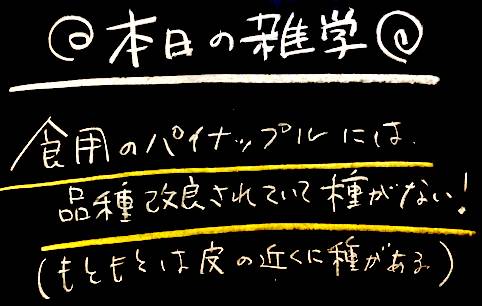 @本日の雑学@
食用のパイナップルには
品種改良されていて種がない!
(もともとは皮の近くに種がある)